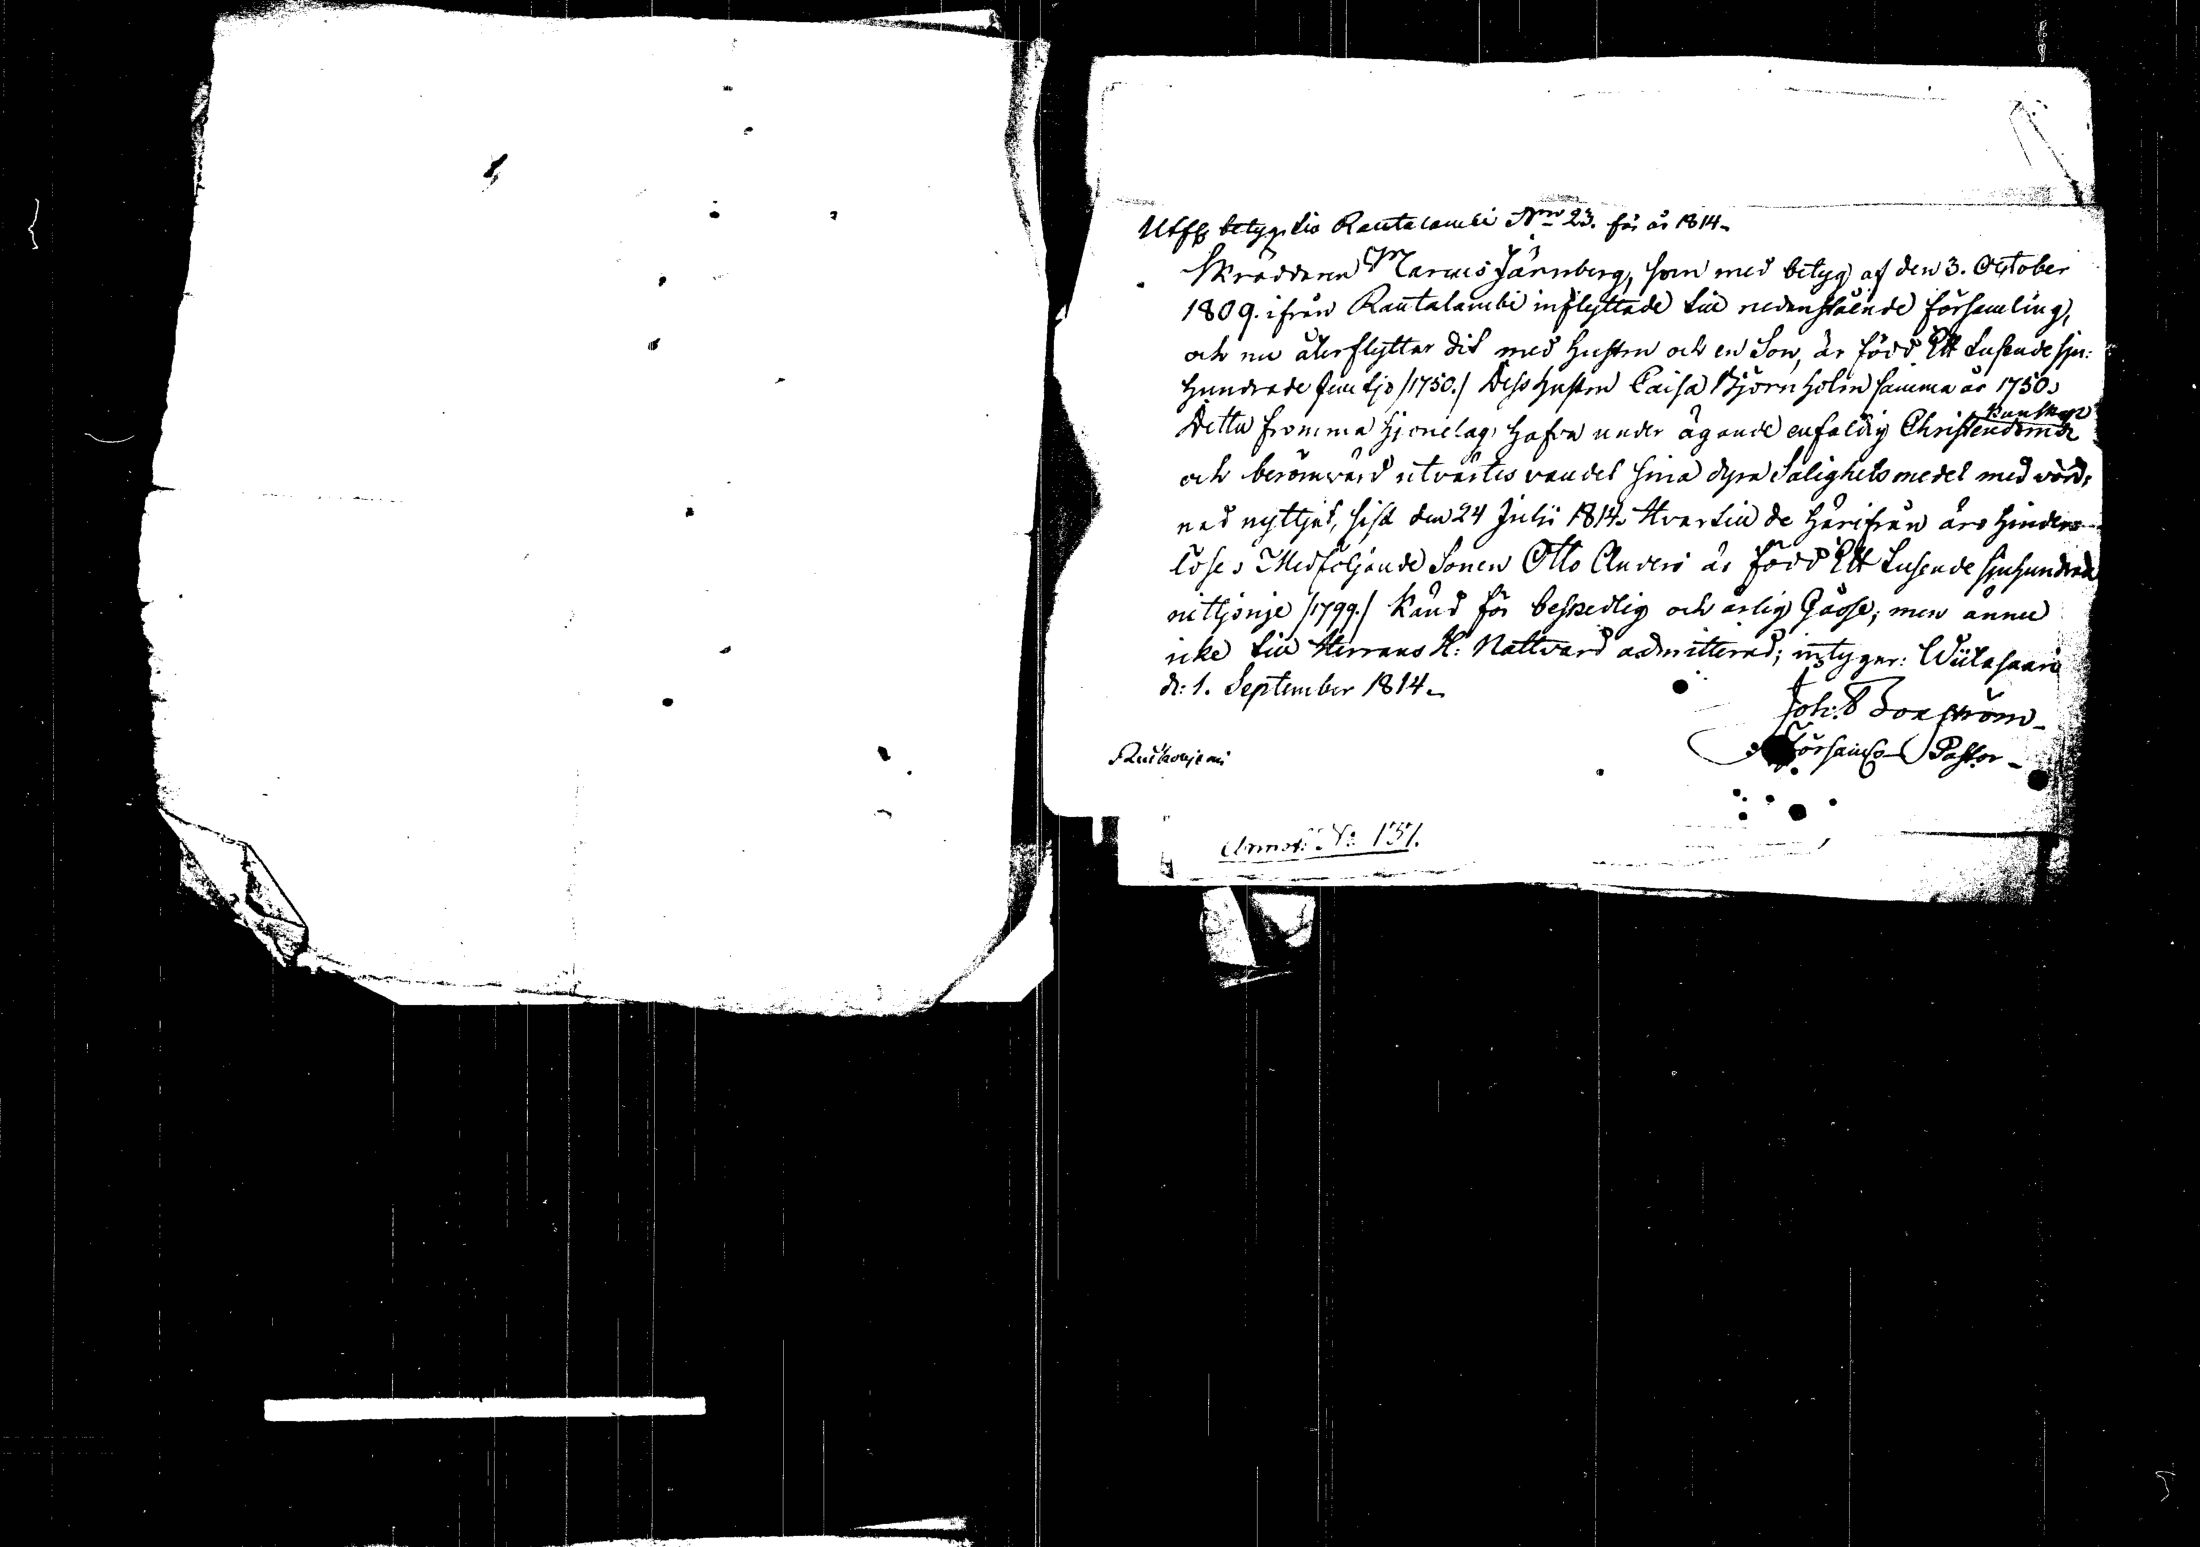 Utfl. betyg tio Rautalambi Nro 23. för år 1814.
Skräddaren Marcus Järnberg, som med betyg af den 3. October
1809. ifrån Rautalambi inflyttade till nedanstående församling,
och nu återflyttar dit med hustru och en Son, är född Ett tusende sju-
hundrade femtjo /1750./ Dess hustru Caisa Björnholm samma år 1750.
Detta fromma hjonelag hafva under ägande enfaldig Christendoms kunskap
och berömvärd utvärtes vandel sina dyra Salighets medel med vörd-
nad nyttjat, sist den 24 Julii 1814. Hvartill de härifrån äro hinders-
löse. Medföljande Sonen Otto Anders är född Ett tusende sjuhundrade
nittjonje /1799./ Känd för beskedlig och ärlig Gåsse; men ännu
icke till Herrans H: Nattvard admitterad; intygar: Wiitasaari
d: 1. September 1814.
Joh:
Församls Pastor
Annot: No: 151.